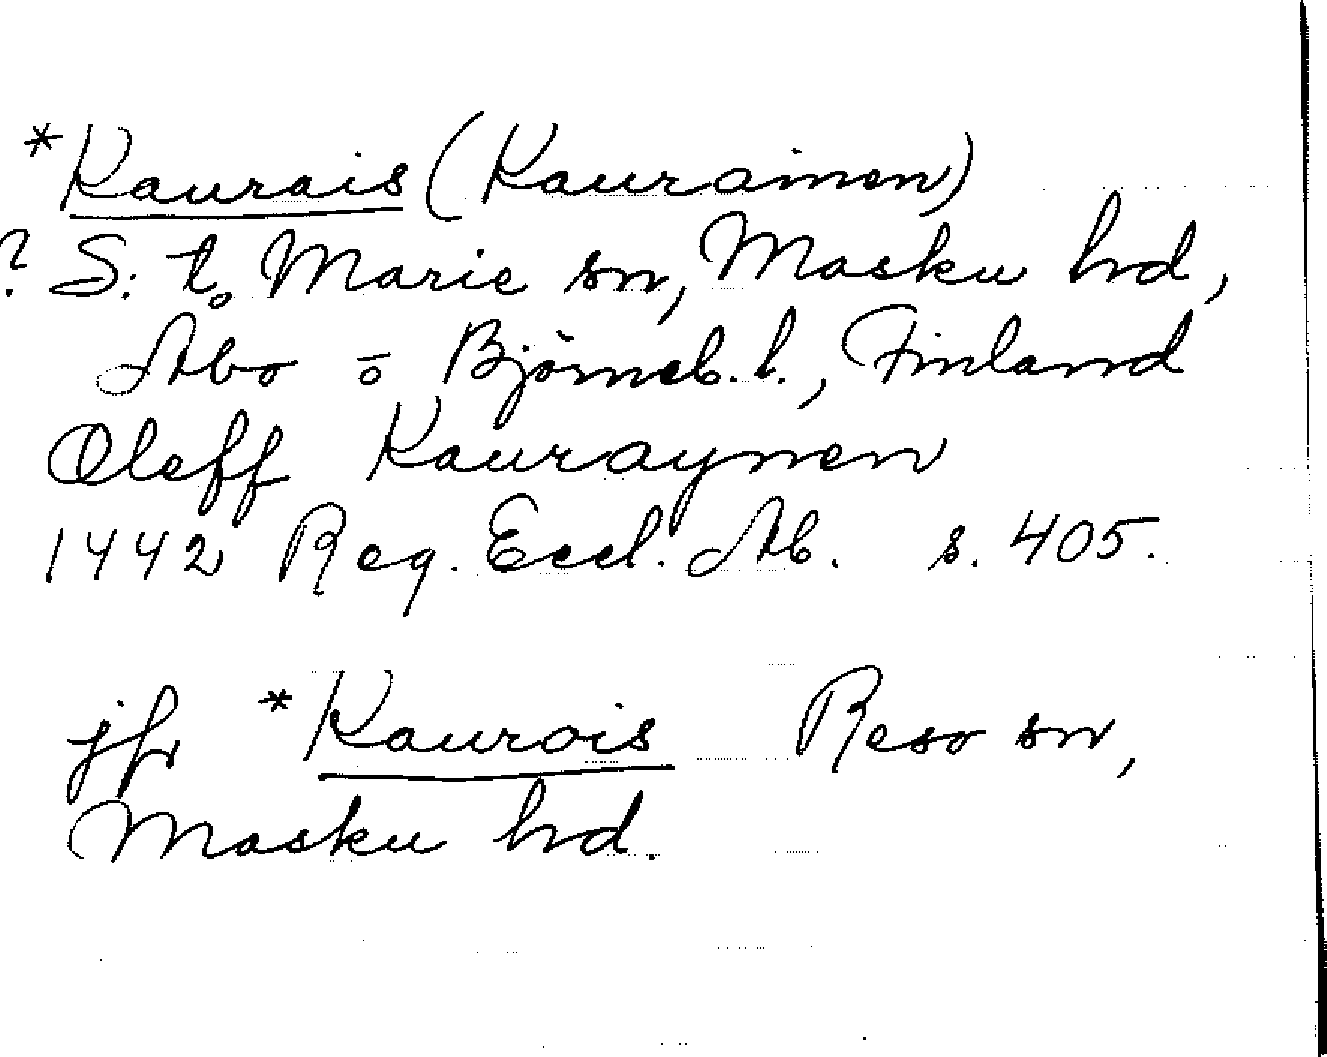 *Kaurais (Kaurainen)
? S:ta Marie sn, Masku hd,
Åbo o Björneb. l., Finland
Oleff Kauraynen
1442 Reg. Eccl. Ab. s. 405.
jfr *Kaurois Reso sn,
Masku hd.